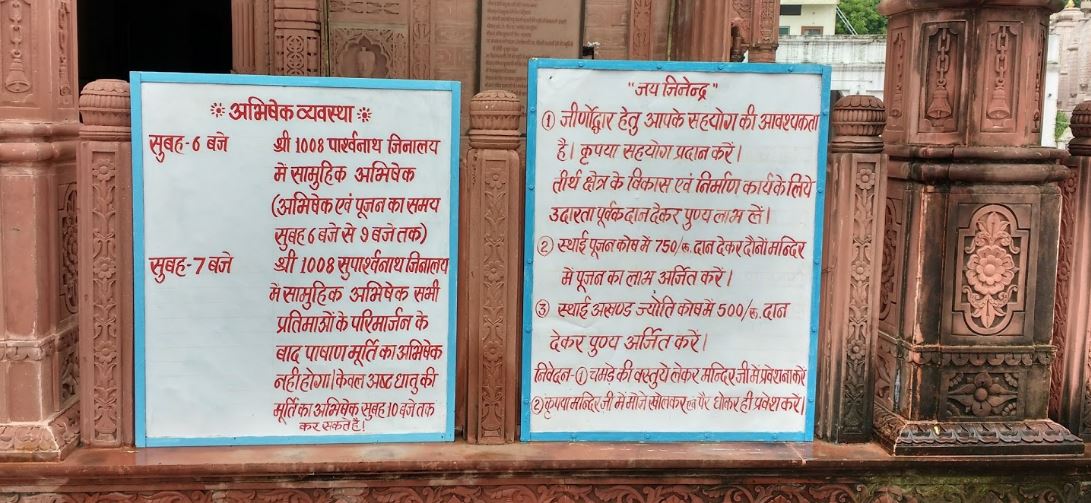 अभिषेक व्यवस्था
सुबह-6 बजे श्री 1008 पार्श्वनाथ जिनालय
में सामुहिक अभिषेक
(अभिषेक एवं पूजन का समय
सुबह 6 बजे से 9 बजे तक)
सुबह-7 बजे श्री 1008 सुपार्श्वनाथ जिनालय
में सामुहिक अभिषेक सभी
प्रतिमाओं के परिमार्जन के
बाद पाषाण मूर्ति का अभिषेक
नही होगा। केवल अष्ट धातु की
मूर्ति का अभिषेक सुबह 10 बजे तक
कर सकते है।
"जय जिनेन्द्र"
① जीर्णोद्वार हेतु आपके सहयोग की आवश्यकता
है। कृपया सहयोग प्रदान करें।
तीर्थ क्षेत्र के विकास एवं निर्माण कार्य के लिये
उदारता पूर्वक दान देकर पुण्य लाभ लें।
② स्थाई पूजन कोष में 750/रु. दान देकर दौनों मन्दिर
में पूजन का लाभ अर्जित करें।
③ स्थाई अखण्ड ज्योति कोष में 500/रु. दान
देकर पुण्य अर्जित करें।
निवेदन-① चमड़े की वस्तुये लेकर मन्दिर जी में प्रवेश ना करे
② कृपया मन्दिर जी में मोजे खोलकर एवं पैर धोकर ही प्रवेश करे।